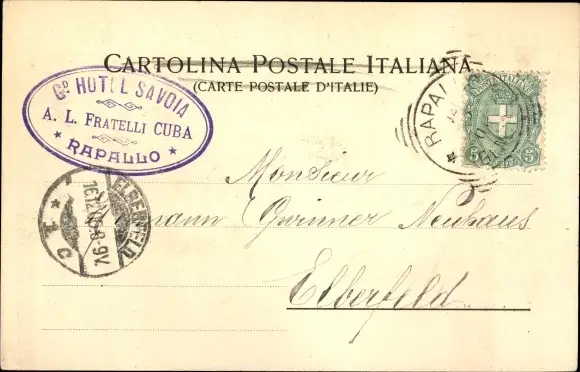 CARTOLINA POSTALE ITALIANA
(CARTE POSTALE D'ITALIE)
GD HOTEL SAVOIA
A. L. FRATELLI CUBA
* RAPALLO *
RAPALLO
5 5
ELBERFELD
8-9V.
* 1 c
Monsieur
Gwinner Neuhaus
Elberfeld